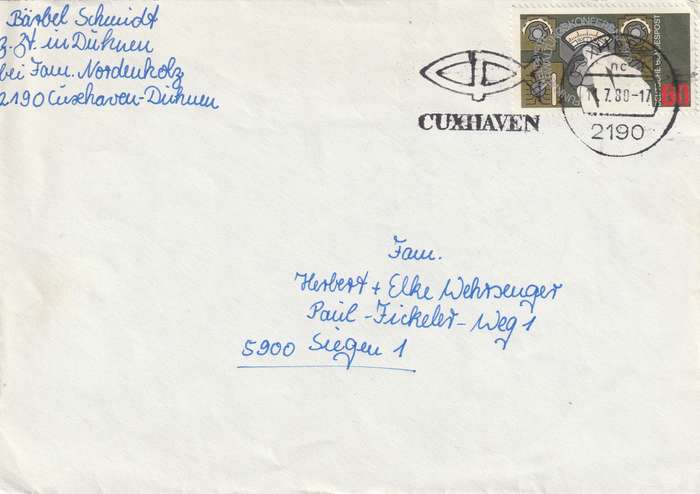 Bärbel Schmidt
z.Zt. in Duhnen
bei Fam. Nordenholz
2190 Cuxhaven-Duhnen
CUXHAVEN
nc
7.80-17
2190
60
Fam.
Herbert + Elke Wehrsenger
Paul-Fickeler-Weg 1
5900 Siegen 1